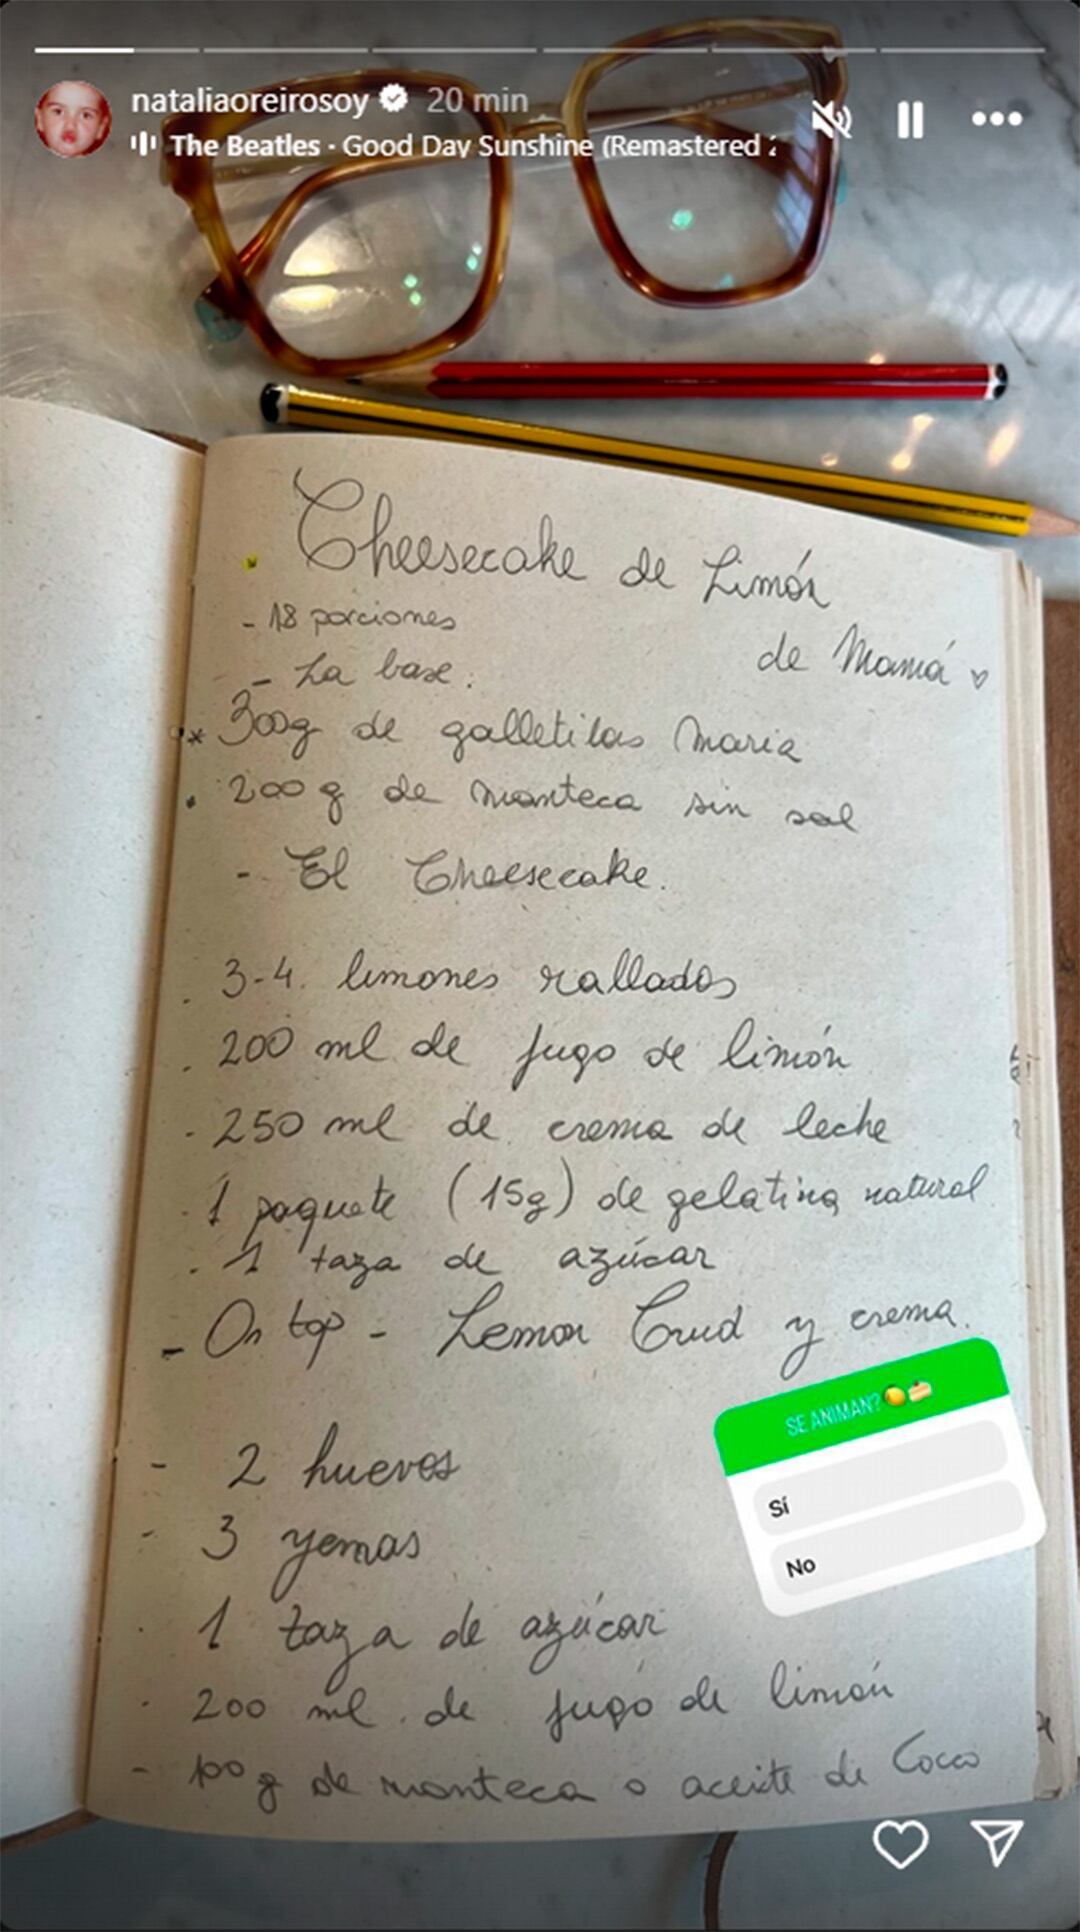 nataliaoreirosoy 20 min
The Beatles · Good Day Sunshine (Remastered 2
Cheesecake de Limón
- 18 porciones
de Mamá
- La base:
* 300g de galletitas Maria
. 200 g de manteca sin sal
- El Cheesecake.
. 3-4. limones rallados
. 200 ml de jugo de limón
. 250 ml de crema de leche
. 1 paquete (15g) de gelatina natural
. 1 taza de azúcar
- On top - Lemon Crud y crema.
SE ANIMAN?
Sí
No
- 2 huevos
- 3 yemas
. 1 taza de azúcar
. 200 ml. de jugo de limón
- 100 g de manteca o aceite de Coco